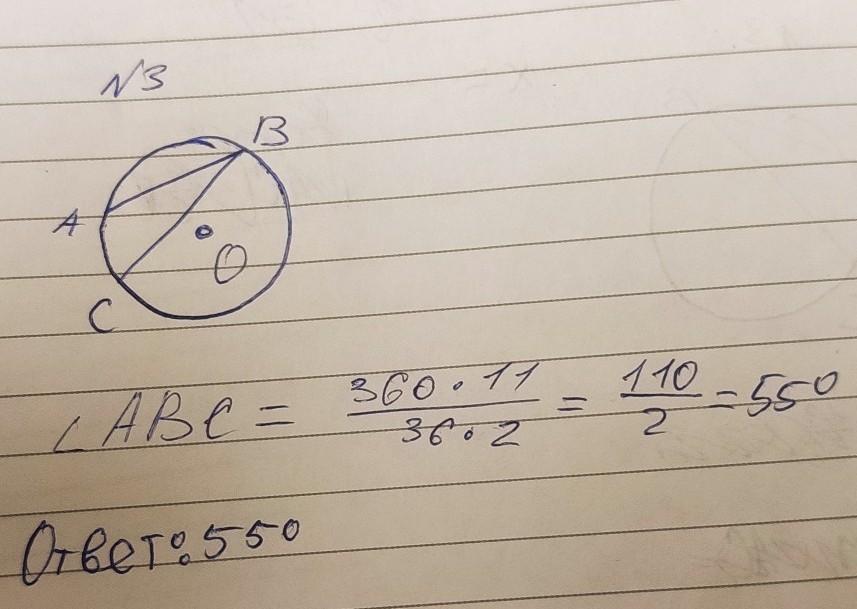 N3
B
A
O
C
∠ABC = 360·11/36·2 = 110/2 = 55°
Ответ: 55°